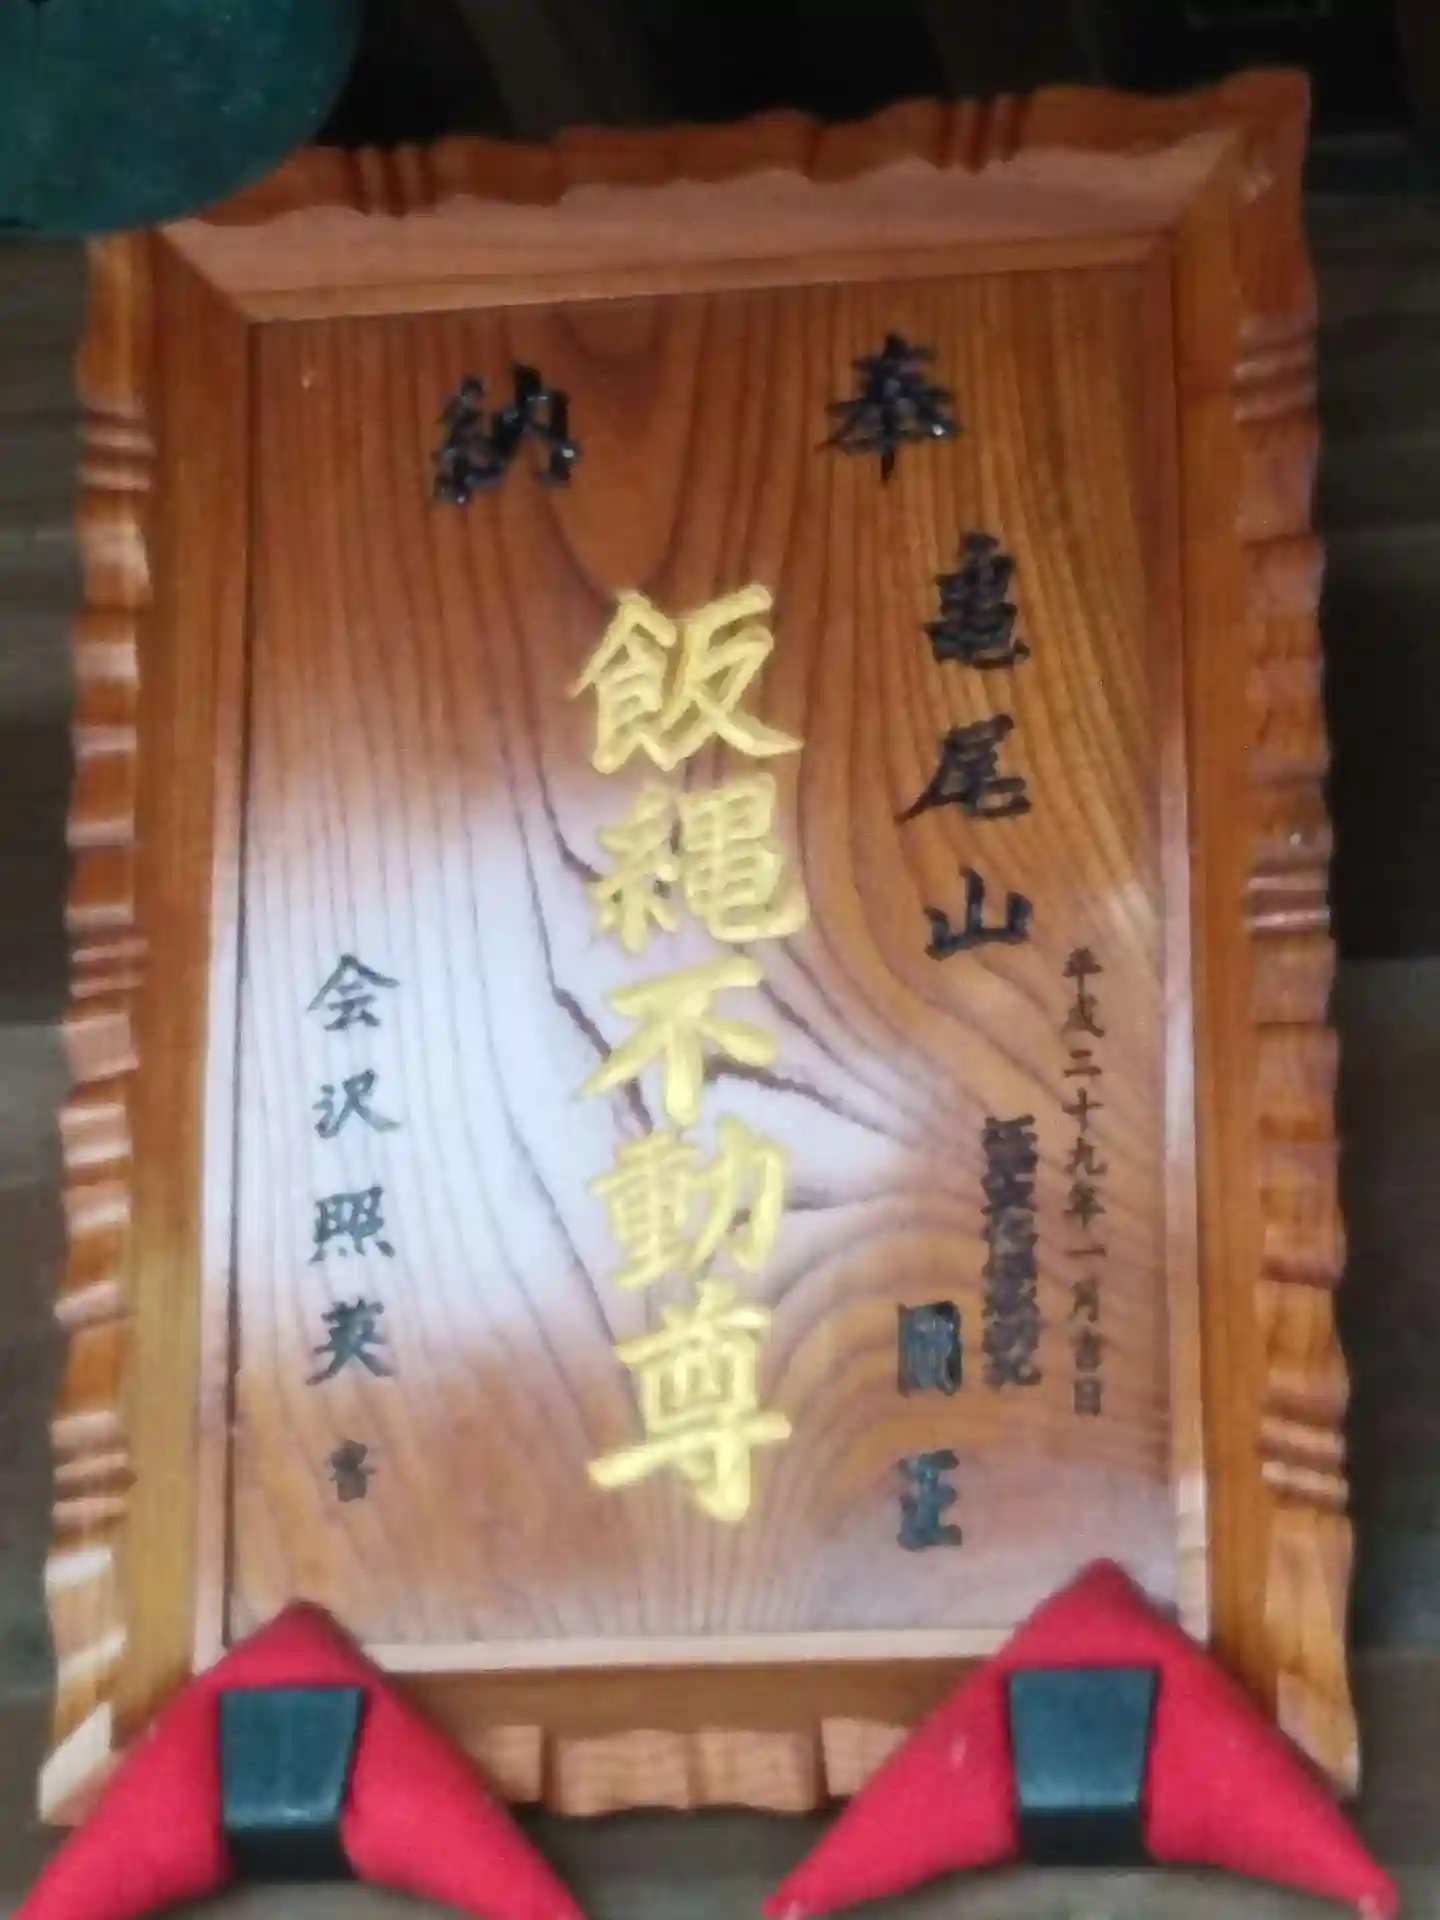 奉納
平成二十九年一月吉日
亀尾山
飯縄不動尊
会沢照英書